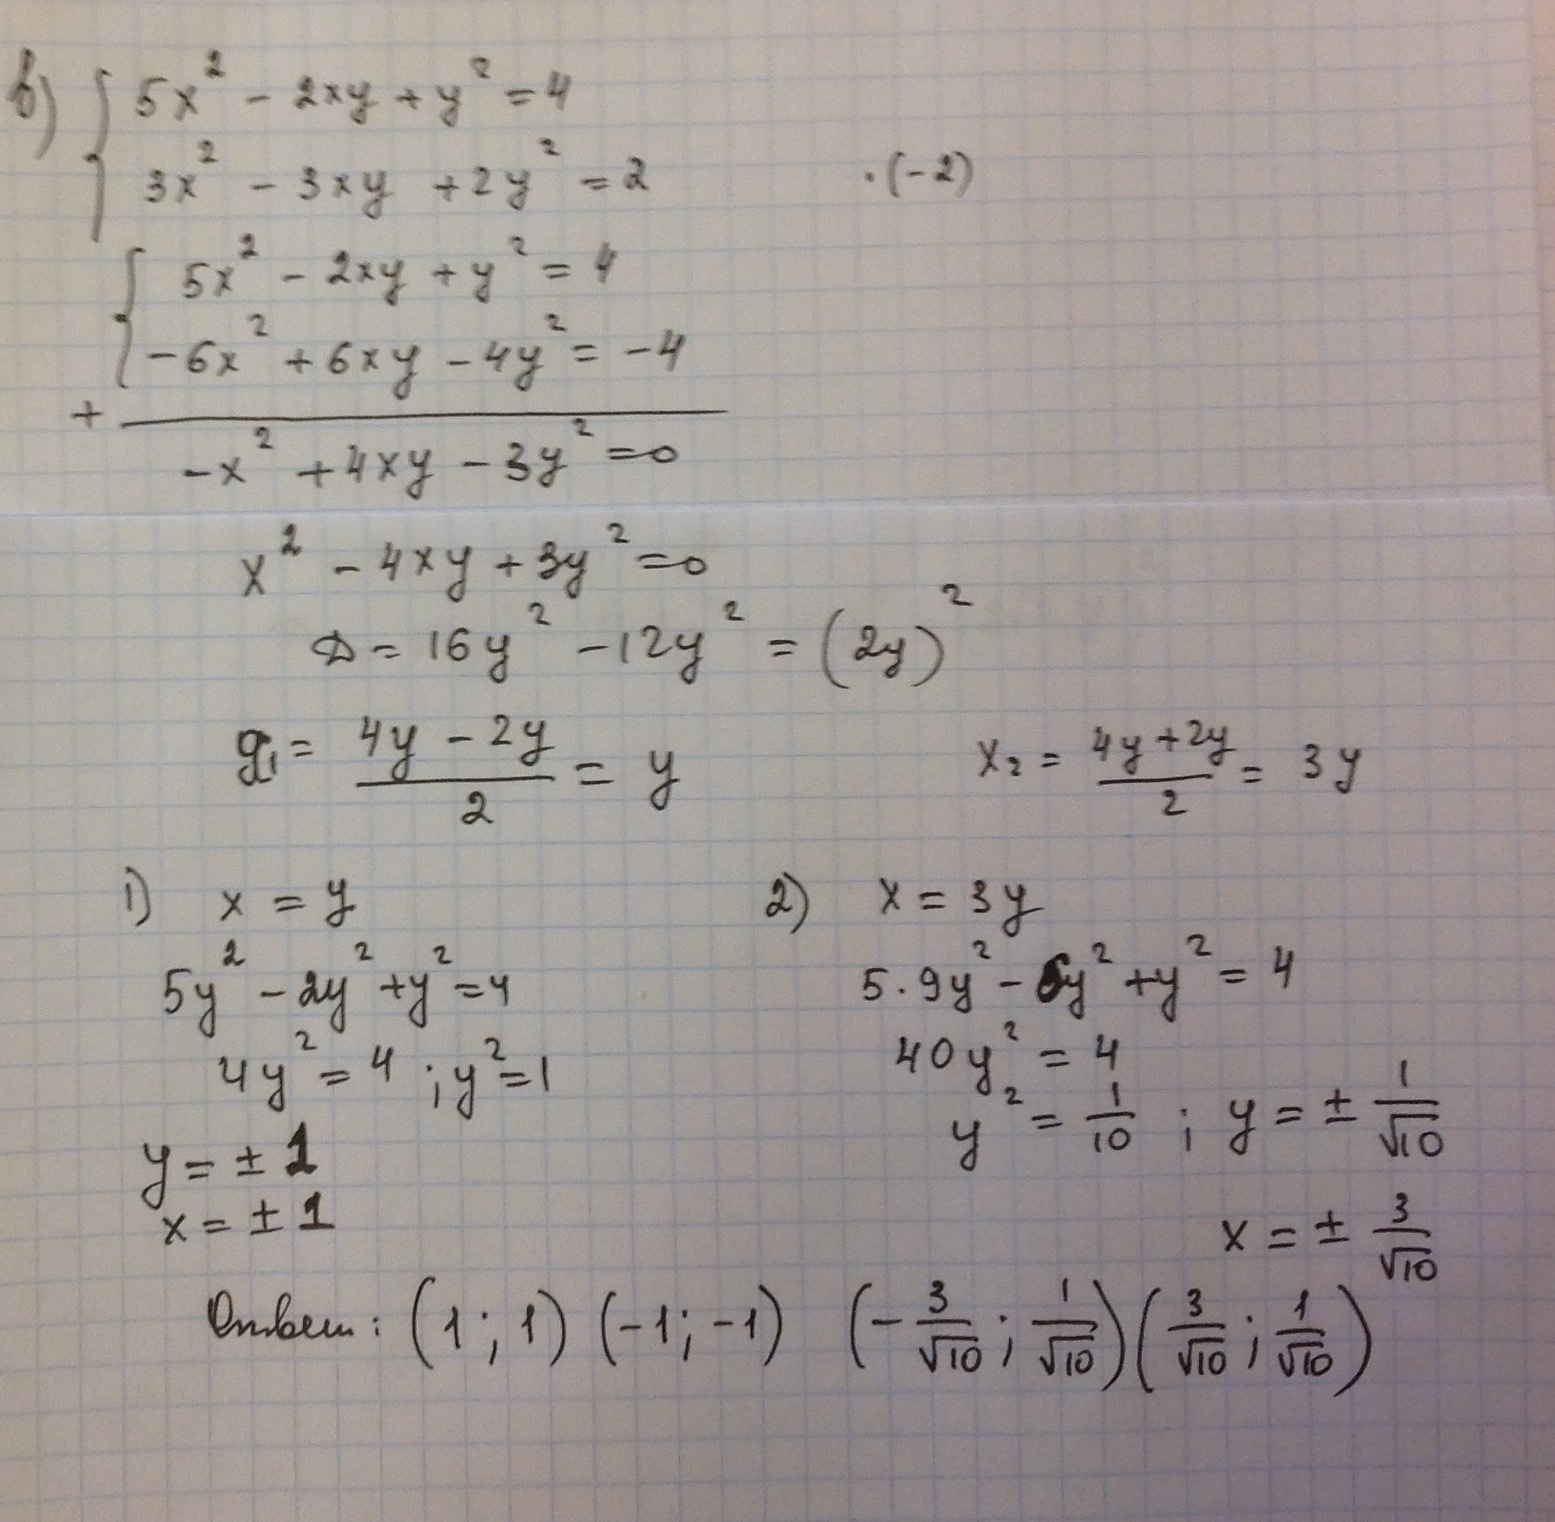 в) { 5x² - 2xy + y² = 4
3x² - 3xy + 2y² = 2 · (-2)
{ 5x² - 2xy + y² = 4
-6x² + 6xy - 4y² = -4
+
-x² + 4xy - 3y² = 0
x² - 4xy + 3y² = 0
D = 16y² - 12y² = (2y)²
y₁ = (4y - 2y)/2 = y x₂ = (4y + 2y)/2 = 3y
1) x = y 2) x = 3y
5y² - 2y² + y² = 4 5·9y² - 6y² + y² = 4
4y² = 4 ; y² = 1 40y² = 4
y = ± 1 y² = 1/10 ; y = ± 1/√10
x = ± 1 x = ± 3/√10
Ответ: (1 ; 1) (-1 ; -1) (-3/√10 ; 1/√10) (3/√10 ; 1/√10)